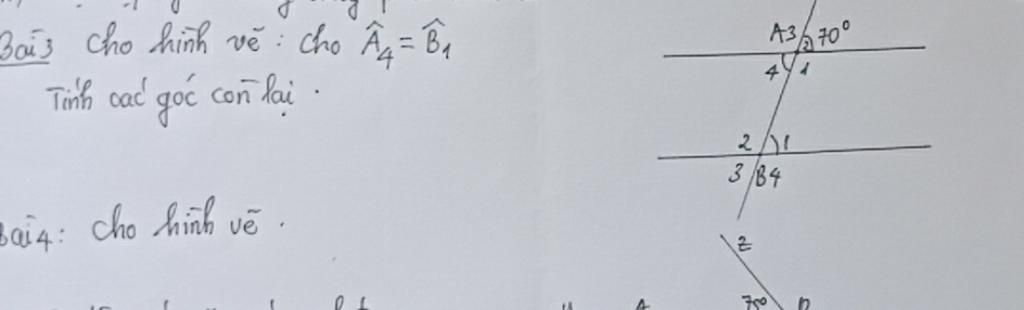 Bài 3 Cho hình vẽ : Cho Â4 = B̂1
Tính các góc còn lại .
A3 2 70°
4 1
2 1
3 B4
Bài 4: Cho hình vẽ .
z
75°